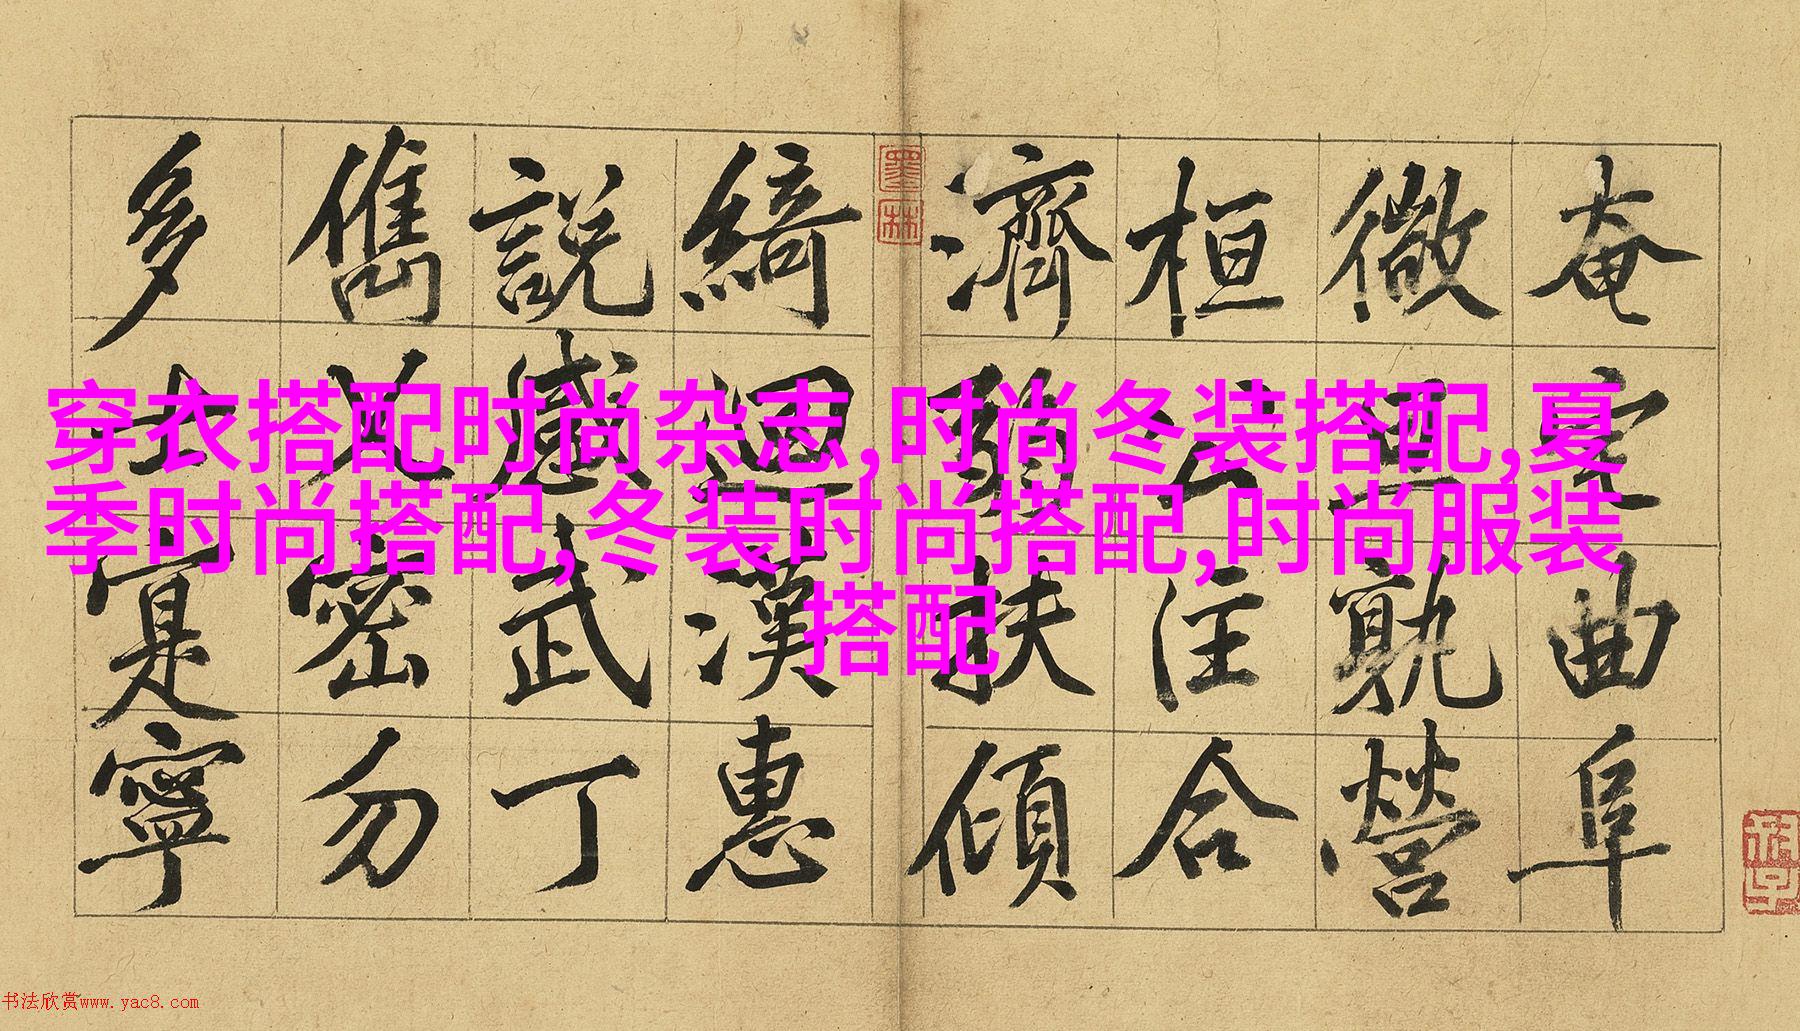 奄宅曲阜
微旦孰營
桓公匡合
濟弱扶傾
綺迴漢惠
說感武丁
儁乂密勿
多士寔寧
墨林
穿衣搭配时尚杂志,时尚冬装搭配,夏
季时尚搭配,冬装时尚搭配,时尚服装
搭配
书法欣赏www.yac8.com